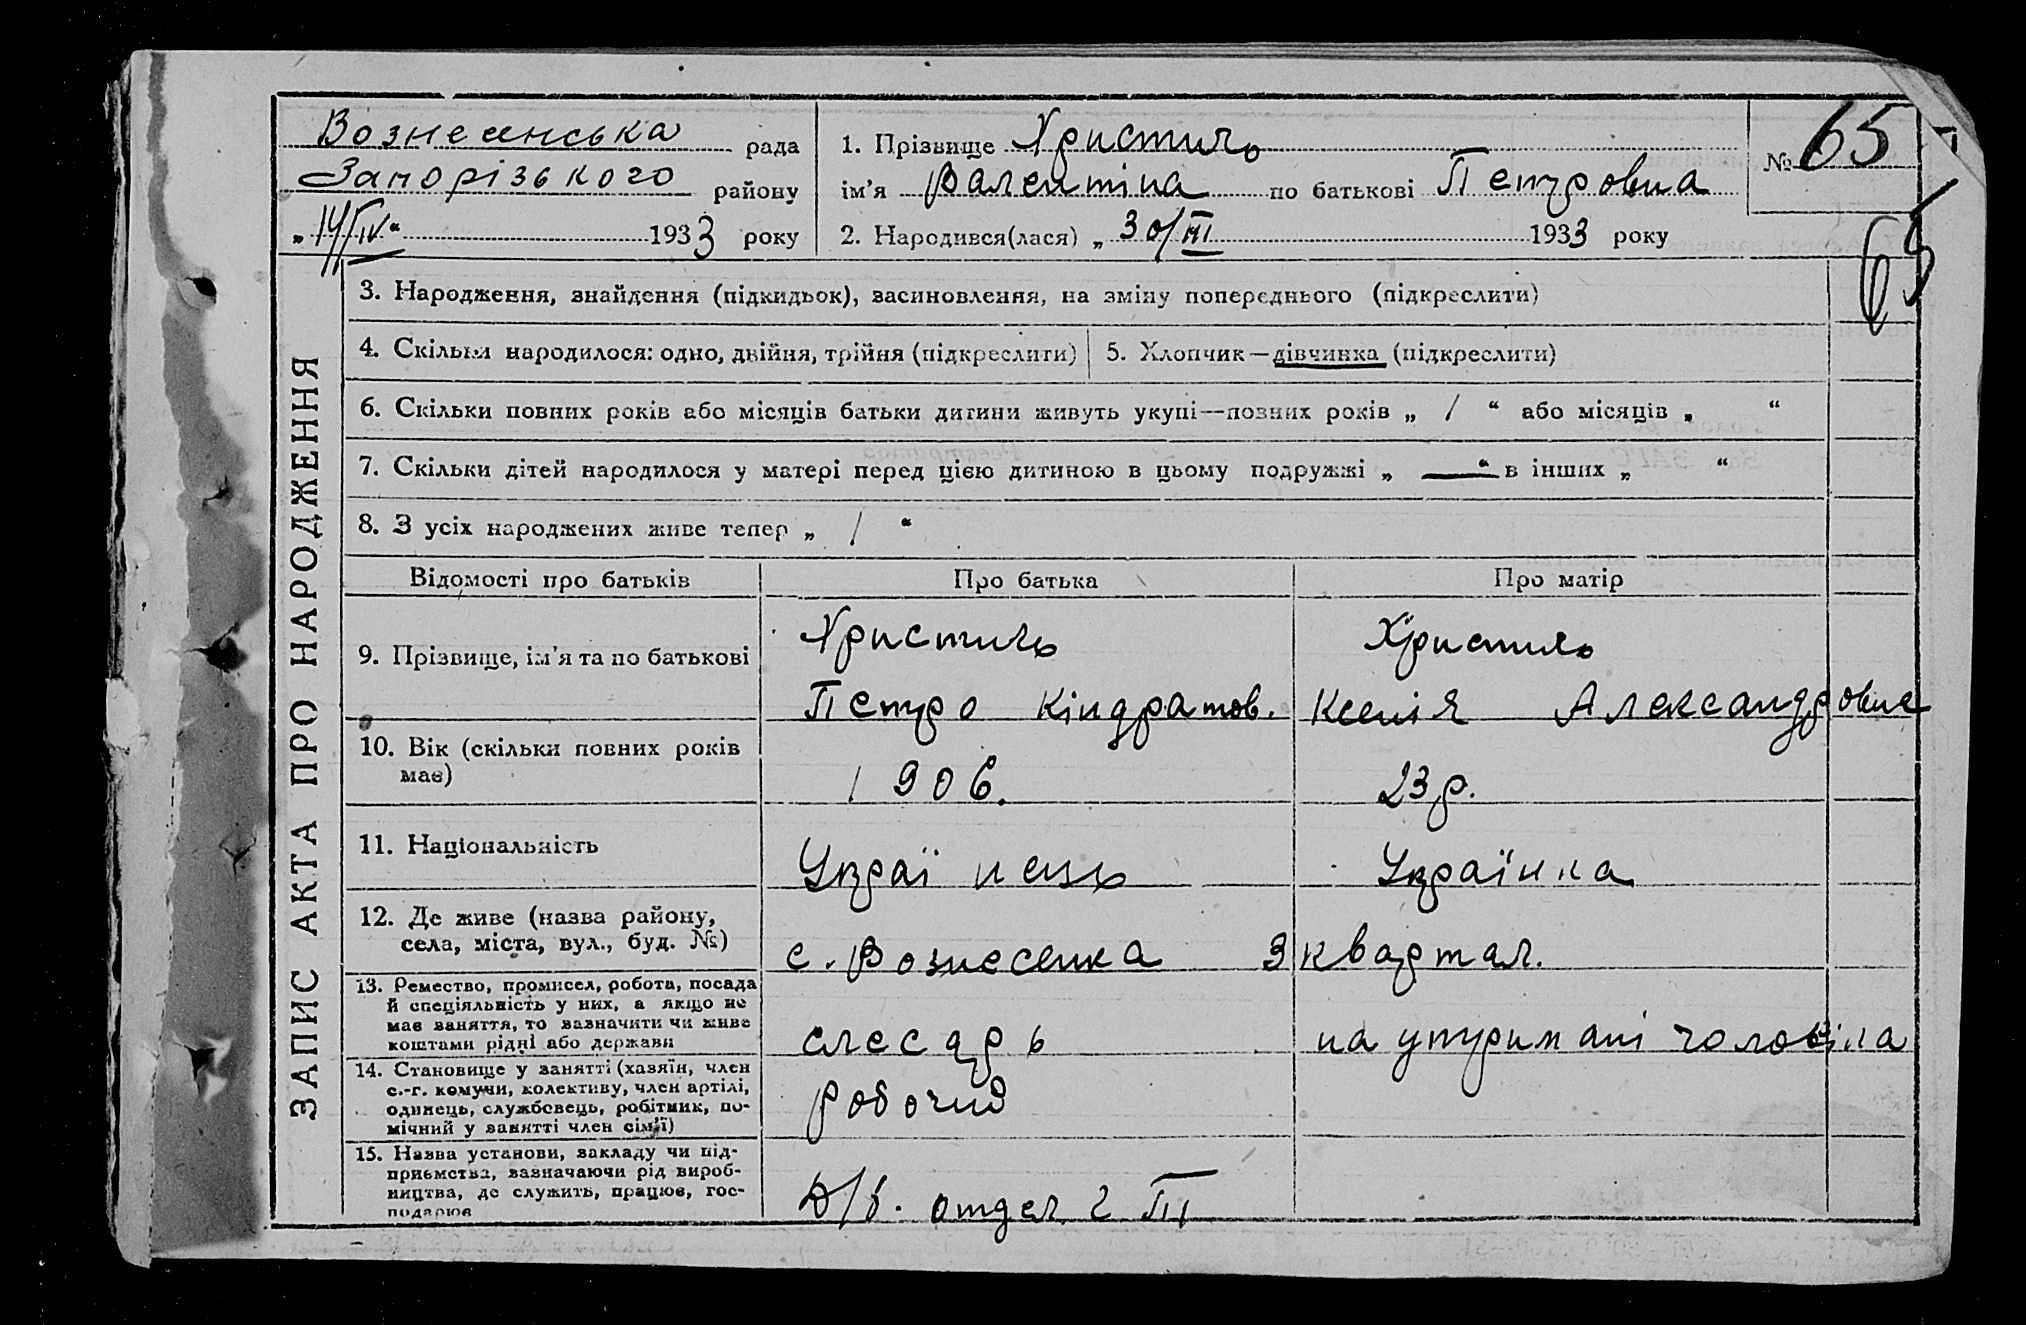 Вознесенська рада
Запорізького району
„14/IV“ 1933 року
1. Прізвище Христичь
ім’я Валентіна по батькові Петровна
2. Народився(лася) „30/III 1933 року
№ 65
65
ЗАПИС АКТА ПРО НАРОДЖЕННЯ
3. Народження, знайдення (підкидьок), засиновлення, на зміну попереднього (підкреслити)
4. Скільки народилося: одно, двійня, трійня (підкреслити)
5. Хлопчик—дівчинка (підкреслити)
6. Скільки повних років або місяців батьки дитини живуть укупі—повних років „ / “ або місяців „ “
7. Скільки дітей народилося у матері перед цією дитиною в цьому подружжі „ — “ в інших „ “
8. З усіх народжених живе тепер „ / “
Відомості про батьків
Про батька
Про матір
9. Прізвище, ім’я та по батькові
Христичь
Петро Кіндратов.
Христичь
Ксенія Александровна
10. Вік (скільки повних років
має)
1906.
23 р.
11. Національність
Украї нець
Українка
12. Де живе (назва району,
села, міста, вул., буд. №)
с. Вознесенка 3 квартал.
13. Ремество, промисел, робота, посада
й спеціяльність у них, а якщо не
має заняття, то зазначити чи живе
коштами рідні або держави
слесарь
на утриманi чоловіка
14. Становище у занятті (хазяїн, член
с.-г. комуни, колективу, член артілі,
одинець, службовець, робітник, по-
мічний у занятті член сім’ї)
робочий
15. Назва установи, закладу чи під-
приємства, зазначаючи рід вироб-
ництва, де служить, працює, гос-
подарює
отдел 2